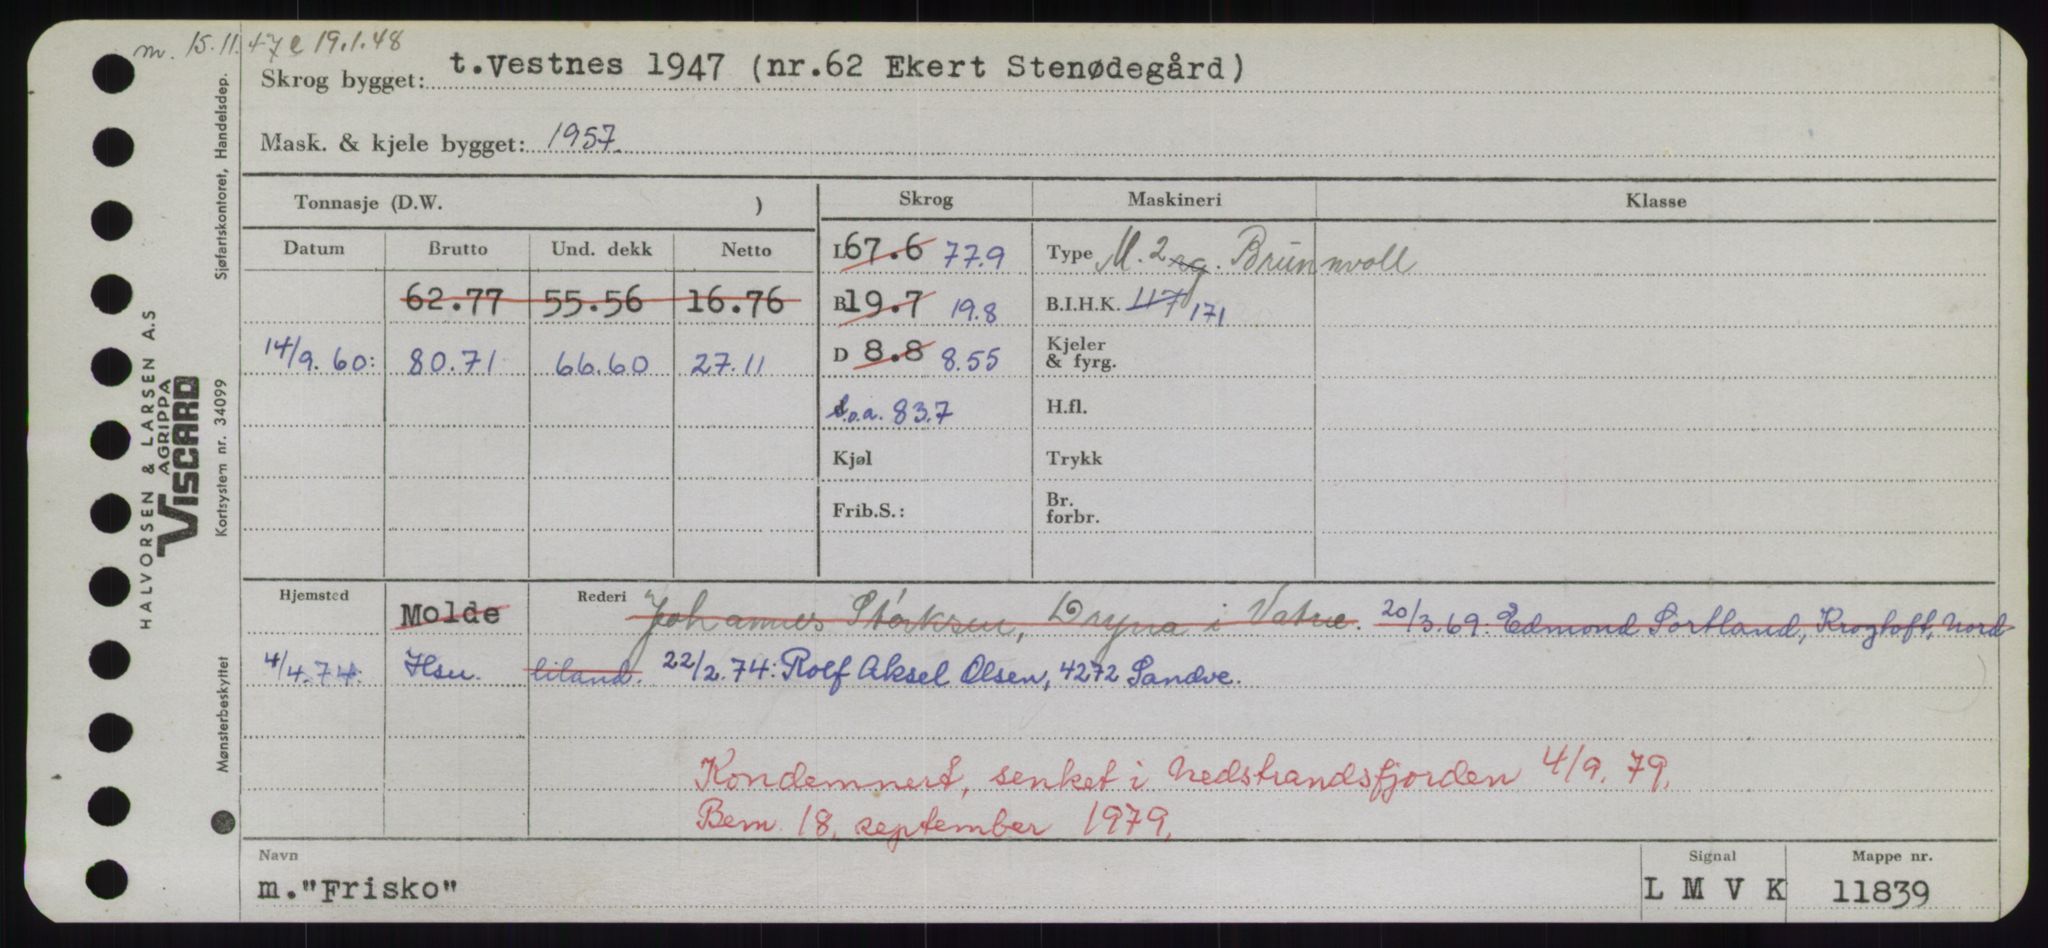 m. 15.11.47 e 19.1.48
Skrog bygget: t.Vestnes 1947 (nr.62 Ekert Stenødegård)
Mask. & kjele bygget: 1957.
Tonnasje (D.W. ) Skrog Maskineri Klasse
Datum Brutto Und. dekk Netto L 67.6 77.9 Type M. 2 Brunnvoll
62.77 55.56 16.76 B 19.7 19.8 B.I.H.K. 117 171
14/9.60: 80.71 66.60 27.11 D 8.8 8.55 Kjeler & fyrg.
L.o.a. 83.7 H.fl.
Kjøl Trykk
Frib.S.: Br. forbr.
Hjemsted Molde Rederi Johannes Storksen, Dryna i Vatne. 20/3.69: Edmond Sortland, Krogtoft, Nord-
4/4.74. Hsu. liland. 22/2.74: Rolf Aksel Olsen, 4272 Sandve.
Kondemnert, senket i Nedstrandsfjorden 4/9.79.
Bem. 18. september 1979.
Navn Signal Mappe nr.
m."Frisko" L M V K 11839
Sjøfartskontoret, Handelsdep.
HALVORSEN & LARSEN A.S
AGRIPPA
VISCARD
Kortsystem nr. 34099
Mønsterbeskyttet